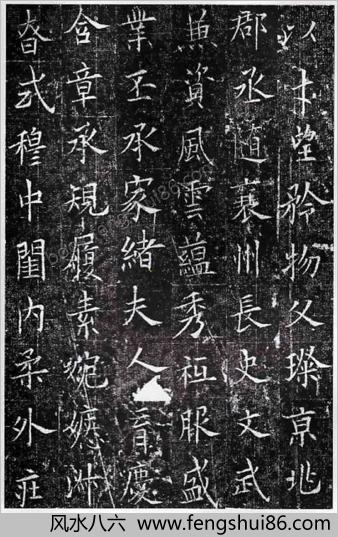 以才望矜物父璨京兆
郡丞随襄州長史文武
兼資風雲蘊秀祗服盛
業丕承家緒夫人育慶
含章承規履素婉嫕淑
昚式穆中閨内柔外庄
风水八六 www.fengshui86.com